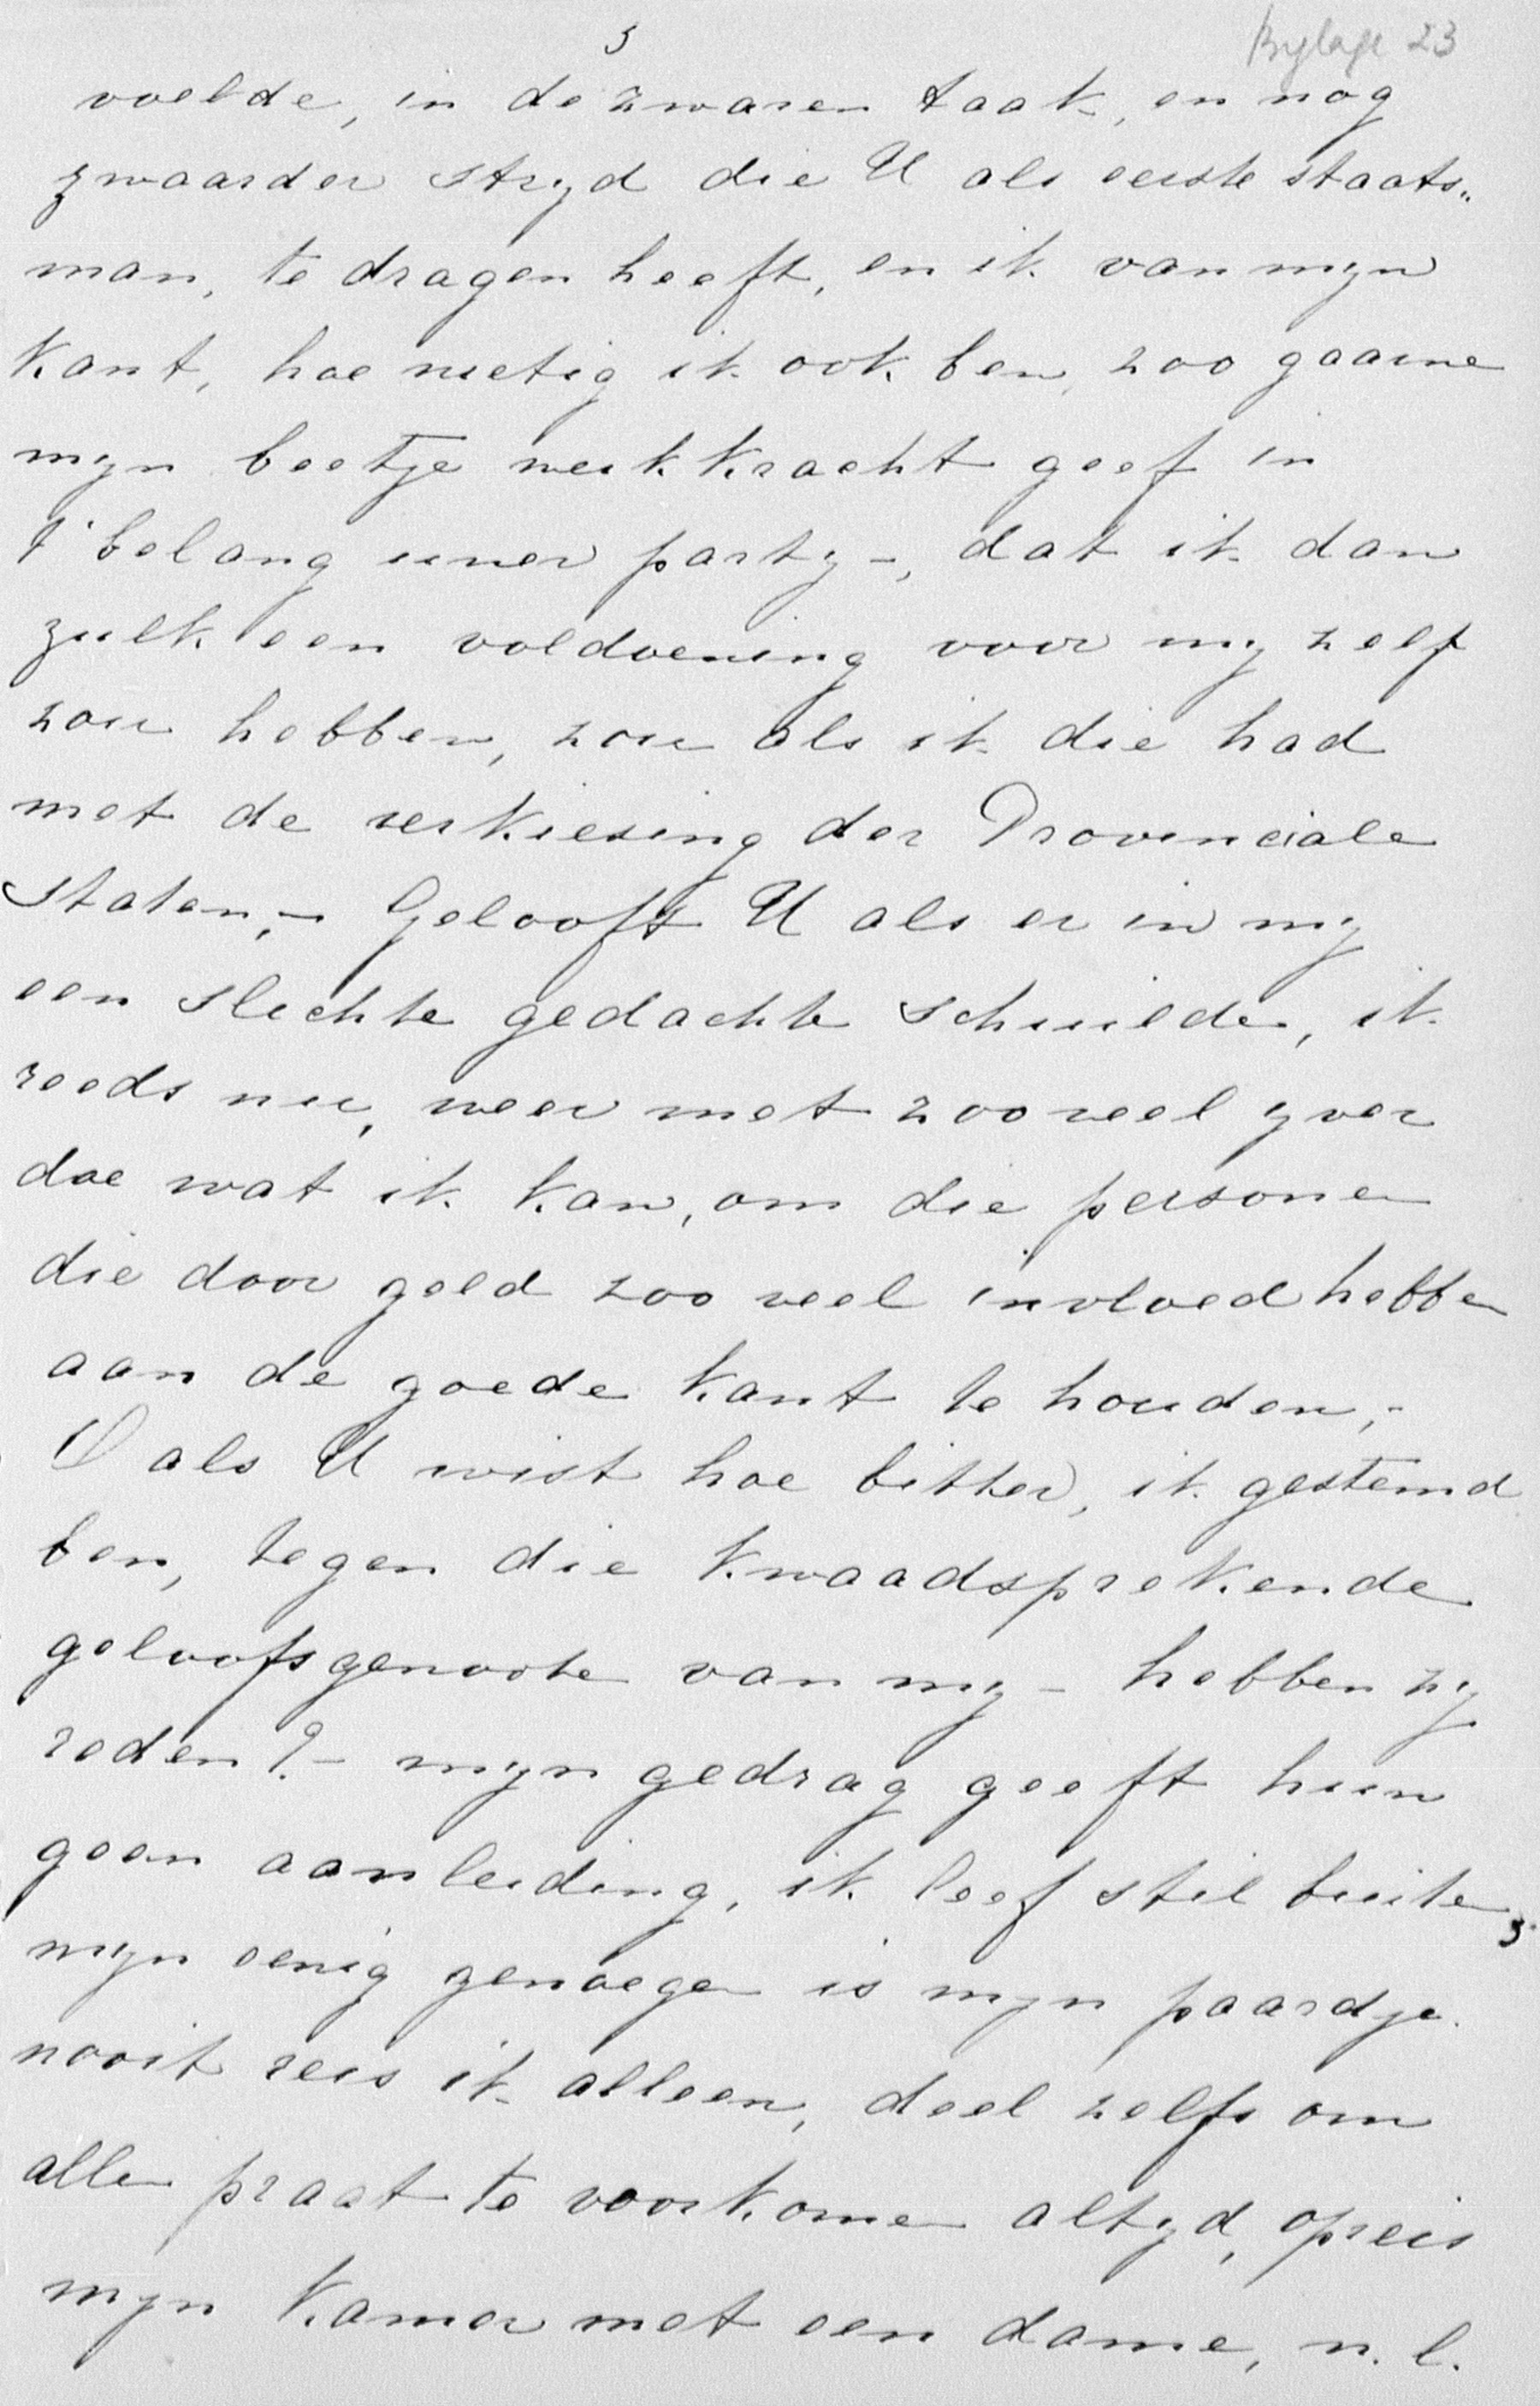 3
Bylage 23
voelde, in de zwaren taak, en nog
zwaarder stryd die U als eerste staats„
man, te dragen heeft, en ik van myn
kant, hoe nietig ik ook ben, zoo gaarne
myn beetje werkkracht geef in
t' belang uwer party –, dat ik dan
zulk een voldoening voor my zelf
zou hebben, zou als ik die had
met de verkiesing der Provinciale
Staten, – Gelooft U als er in my
een slechte gedachte schuilde, ik
reeds nu, weer met zooveel yver
doe wat ik kan, om die persone
die door geld zoo veel invloed hebbe
aan de goede kant te houden, –
O als U wist hoe bitter, ik gestemd
ben, tegen die kwaadsprekende
geloofsgenoote van my – hebben zy
reden? – myn gedrag geeft hun
geen aanleiding, ik leef stil buite
myn eenig genoege is myn paardje.
nooit reis ik alleen, deel zelfs om
alle praat te voorkome altyd, opreis
myn kamer met een dame, n. l.